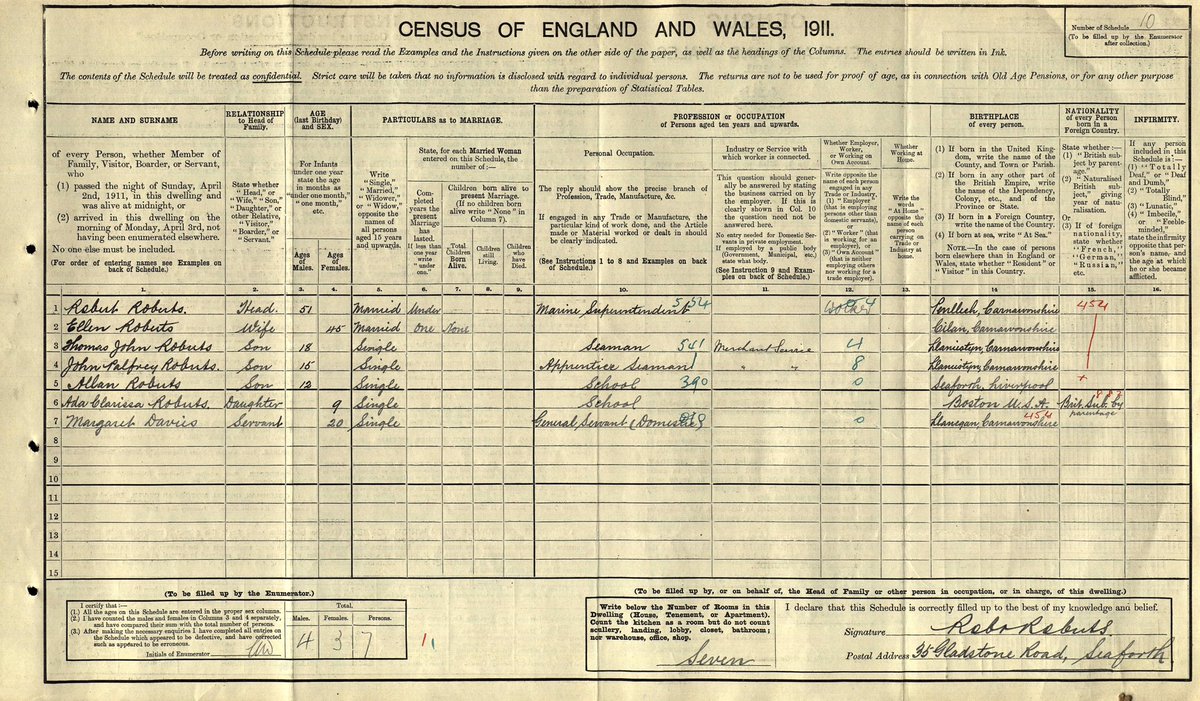 CENSUS OF ENGLAND AND WALES, 1911.
Number of Schedule 10
(To be filled up by the Enumerator
after collection.)
Before writing on this Schedule please read the Examples and the Instructions given on the other side of the paper, as well as the headings of the Columns. The entries should be written in Ink.
The contents of the Schedule will be treated as confidential. Strict care will be taken that no information is disclosed with regard to individual persons. The returns are not to be used for proof of age, as in connection with Old Age Pensions, or for any other purpose
than the preparation of Statistical Tables.
NAME AND SURNAME
RELATIONSHIP
to Head of
Family.
AGE
(last Birthday)
and SEX.
PARTICULARS as to MARRIAGE.
PROFESSION or OCCUPATION
of Persons aged ten years and upwards.
BIRTHPLACE
of every person.
NATIONALITY
of every Person
born in a
Foreign Country.
INFIRMITY.
of every Person, whether Member of
Family, Visitor, Boarder, or Servant,
who
(1) passed the night of Sunday, April
2nd, 1911, in this dwelling and
was alive at midnight, or
(2) arrived in this dwelling on the
morning of Monday, April 3rd, not
having been enumerated elsewhere.
No one else must be included.
(For order of entering names see Examples on
back of Schedule.)
State whether
"Head," or
"Wife," "Son,"
"Daughter," or
other Relative,
"Visitor,"
"Boarder," or
"Servant."
For Infants
under one year
state the age
in months as
"under one month,"
"one month,"
etc.
Ages
of
Males.
Ages
of
Females.
Write
"Single,"
"Married,"
"Widower,"
or "Widow,"
opposite the
names of
all persons
aged 15 years
and upwards.
State, for each Married Woman
entered on this Schedule, the
number of:—
Completed
years the
present
Marriage
has
lasted.
If less than
one year
write
"under
one."
Children born alive to
present Marriage.
(If no children born
alive write "None" in
Column 7).
Total
Children
Born
Alive.
Children
still
Living.
Children
who
have
Died.
Personal Occupation.
The reply should show the precise branch of
Profession, Trade, Manufacture, &c.
If engaged in any Trade or Manufacture, the
particular kind of work done, and the Article
made or Material worked or dealt in should
be clearly indicated.
(See Instructions 1 to 8 and Examples on back
of Schedule.)
Industry or Service with
which worker is connected.
This question should generally
be answered by stating
the business carried on by
the employer. If this is
clearly shown in Col. 10
the question need not be
answered here.
No entry needed for Domestic Servants
in private employment.
If employed by a public body
(Government, Municipal, etc.)
state what body.
(See Instruction 9 and Examples
on back of Schedule.)
Whether Employer,
Worker,
or Working on
Own Account.
Write opposite the
name of each person
engaged in any
Trade or Industry,
(1) "Employer"
(that is employing
persons other than
domestic servants),
or
(2) "Worker" (that
is working for an
employer), or
(3) "Own Account"
(that is neither
employing others
nor working for a
trade employer).
Whether
Working at
Home.
Write the
words
"At Home"
opposite the
name of each
person
carrying on
Trade or
Industry at
home.
(1) If born in the United Kingdom,
write the name of the
County, and Town or Parish.
(2) If born in any other part of
the British Empire, write
the name of the Dependency,
Colony, etc., and of the
Province or State.
(3) If born in a Foreign Country,
write the name of the Country.
(4) If born at sea, write "At Sea."
NOTE.—In the case of persons
born elsewhere than in England or
Wales, state whether "Resident" or
"Visitor" in this Country.
State whether :—
(1) "British
subject by
parentage."
(2) "Naturalised
British subject,"
giving
year of
naturalisation.
Or
(3) If of foreign
nationality,
state whether
"French,"
"German,"
"Russian,"
etc.
If any person
included in this
Schedule is:—
(1) "Totally
Deaf," or "Deaf
and Dumb,"
(2) "Totally
Blind,"
(3) "Lunatic,"
(4) "Imbecile,"
or "Feeble-minded,"
state the infirmity
opposite that person's
name, and
the age at which
he or she became
afflicted.
1. 2. 3. 4. 5. 6. 7. 8. 9. 10. 11. 12. 13. 14 15. 16.
1 Robert Roberts. Head. 51 Married Under Marine Superintendent 554 Worker 4 Penllech, Carnarvonshire 454
2 Ellen Roberts Wife 45 Married One None Cilan, Carnarvonshire
3 Thomas John Roberts Son 18 Single Seaman 541 Merchant Service 4 Llaniestyn, Carnarvonshire
4 John Palfrey Roberts. Son 15 Single Apprentice Seaman " " 8 Llaniestyn, Carnarvonshire
5 Allan Roberts Son 12 Single School 390 0 Seaforth, Liverpool +
6 Ada Clarissa Roberts. Daughter 9 Single School Boston U.S.A. Brit. Sub. by parentage
7 Margaret Davies Servant 20 Single General Servant (Domestic) 0 Llanegan, Carnarvonshire 454
8
9
10
11
12
13
14
15
(To be filled up by the Enumerator.)
I certify that :—
(1.) All the ages on this Schedule are entered in the proper sex columns.
(2.) I have counted the males and females in Columns 3 and 4 separately,
and have compared their sum with the total number of persons.
(3.) After making the necessary enquiries I have completed all entries on
the Schedule which appeared to be defective, and have corrected
such as appeared to be erroneous.
Initials of Enumerator
Total.
Males. Females. Persons.
4 3 7
1
(To be filled up by, or on behalf of, the Head of Family or other person in occupation, or in charge, of this dwelling.)
Write below the Number of Rooms in this
Dwelling (House, Tenement, or Apartment).
Count the kitchen as a room but do not count
scullery, landing, lobby, closet, bathroom;
nor warehouse, office, shop.
Seven
I declare that this Schedule is correctly filled up to the best of my knowledge and belief.
Signature Robt Roberts
Postal Address 35 Gladstone Road, Seaforth.